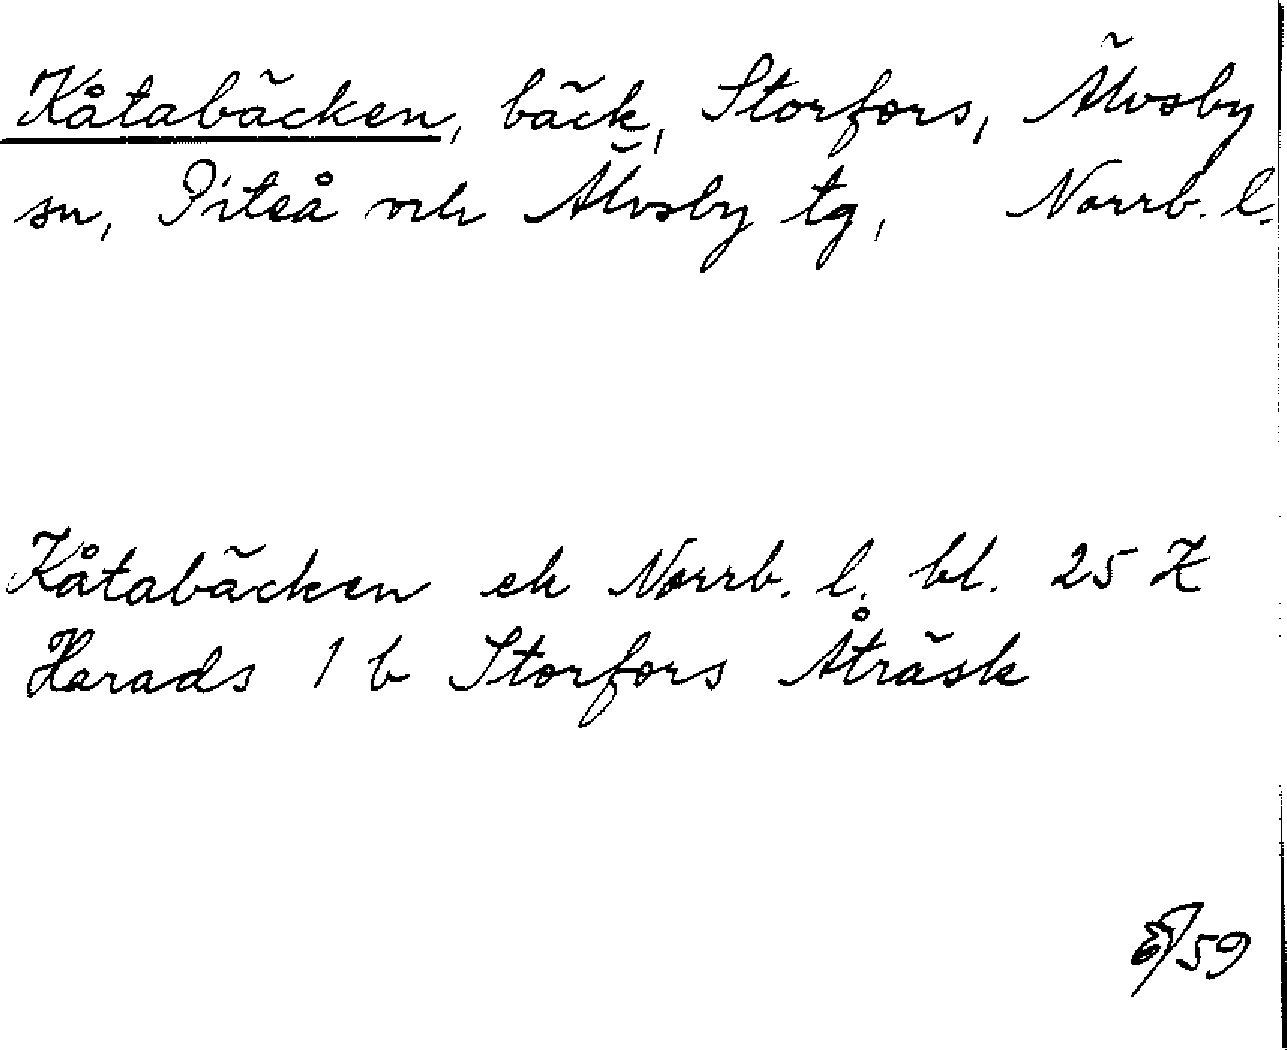 Kåtabäcken, bäck, Storfors, Älvsby
sn, Piteå och Älvsby tg, Norrb. l.
Kåtabäcken ek Norrb. l. bl. 25 Z
Harads 1 b Storfors Åträsk
59